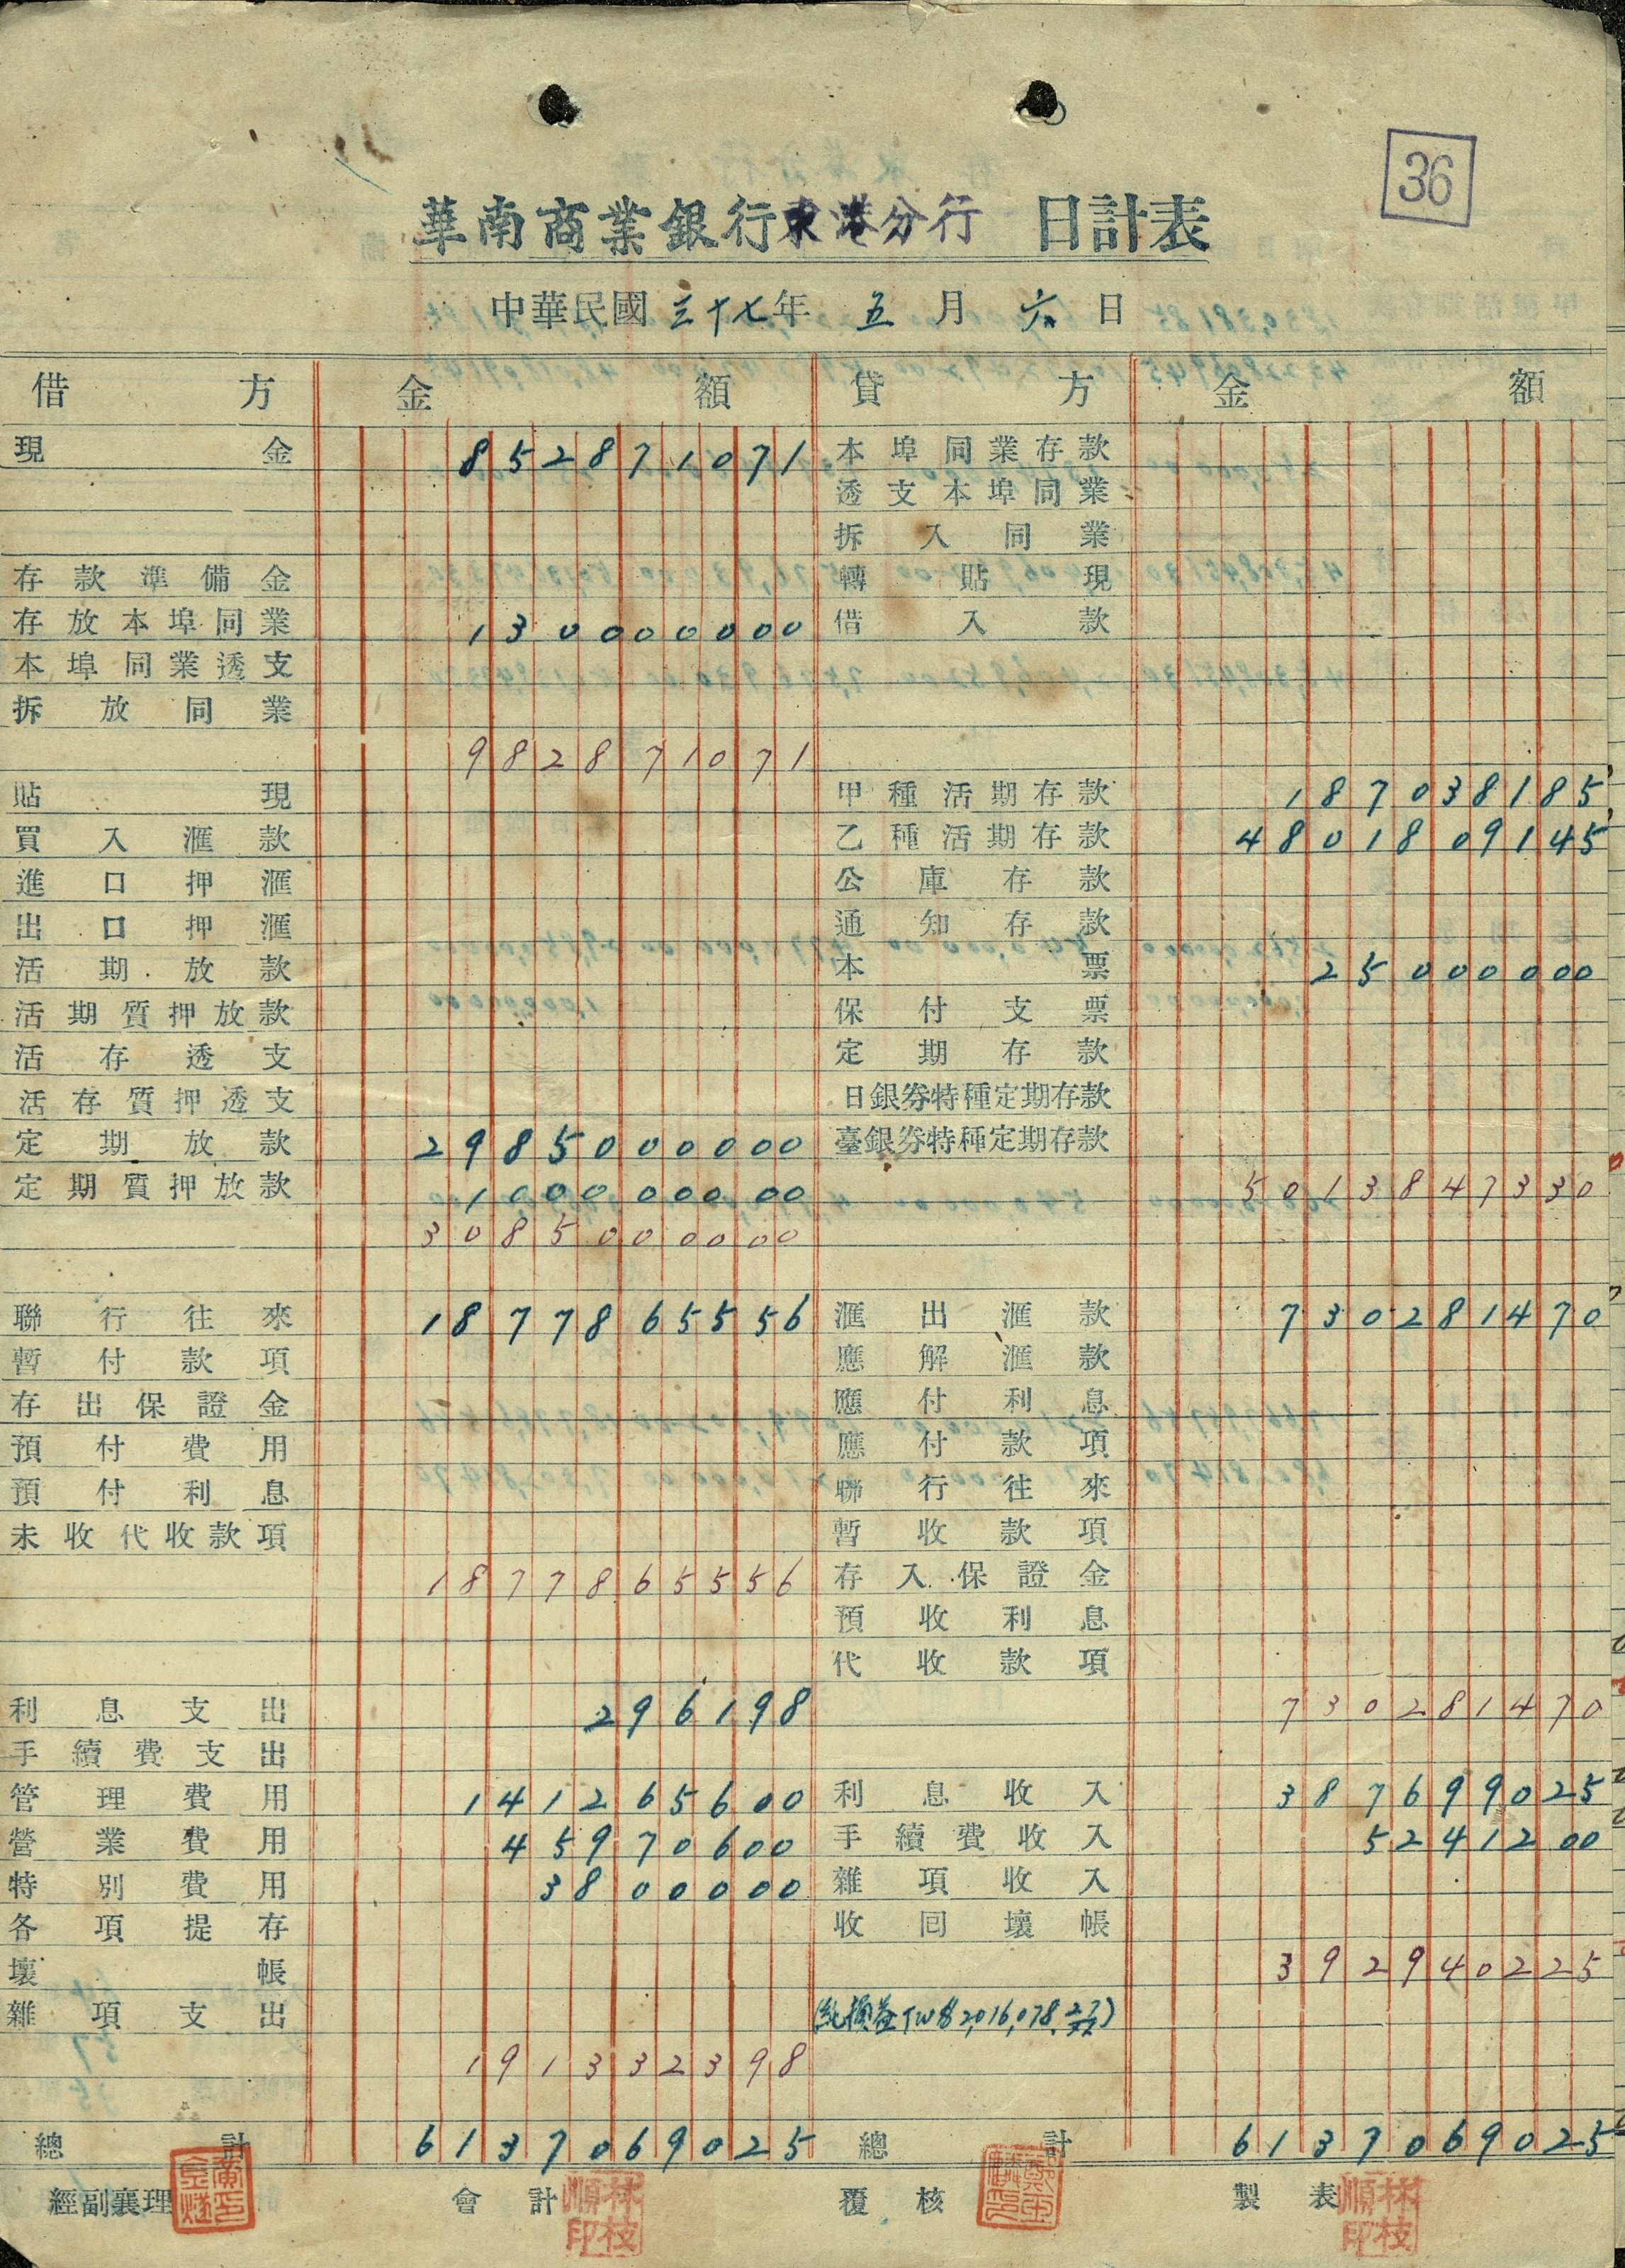 36
華南商業銀行東港分行 日計表
中華民國三十七年 五月六日
借方 金額 貸方 金額
現金 852871071 本埠同業存款
透支本埠同業
拆入同業
存款準備金 轉貼現
存放本埠同業 130000000 借入款
本埠同業透支
拆放同業
982871071
貼現 甲種活期存款 187038185
買入滙款 乙種活期存款 4801809145
進口押滙 公庫存款
出口押滙 通知存款
活期放款 本票 25000000
活期質押放款 保付支票
活存透支 定期存款
活存質押透支 日銀券特種定期存款
定期放款 2985000000 臺銀券特種定期存款
定期質押放款 100000000 5013847330
3085000000
聯行往來 1877865556 滙出滙款 730281470
暫付款項 應解滙款
存出保證金 應付利息
預付費用 應付款項
預付利息 聯行往來
未收代收款項 暫收款項
1877865556 存入保證金
預收利息
代收款項
利息支出 296198 730281470
手續費支出
管理費用 141265600 利息收入 387699025
營業費用 45970600 手續費收入 5241200
特別費用 3800000 雜項收入
各項提存 收回壞帳
壞帳 392940225
雜項支出 (純損益TW$2,016,078.27)
191332398
總計 6137069025 總計 6137069025
經副襄理 會計 林枝順印 覆核 製表 林枝順印